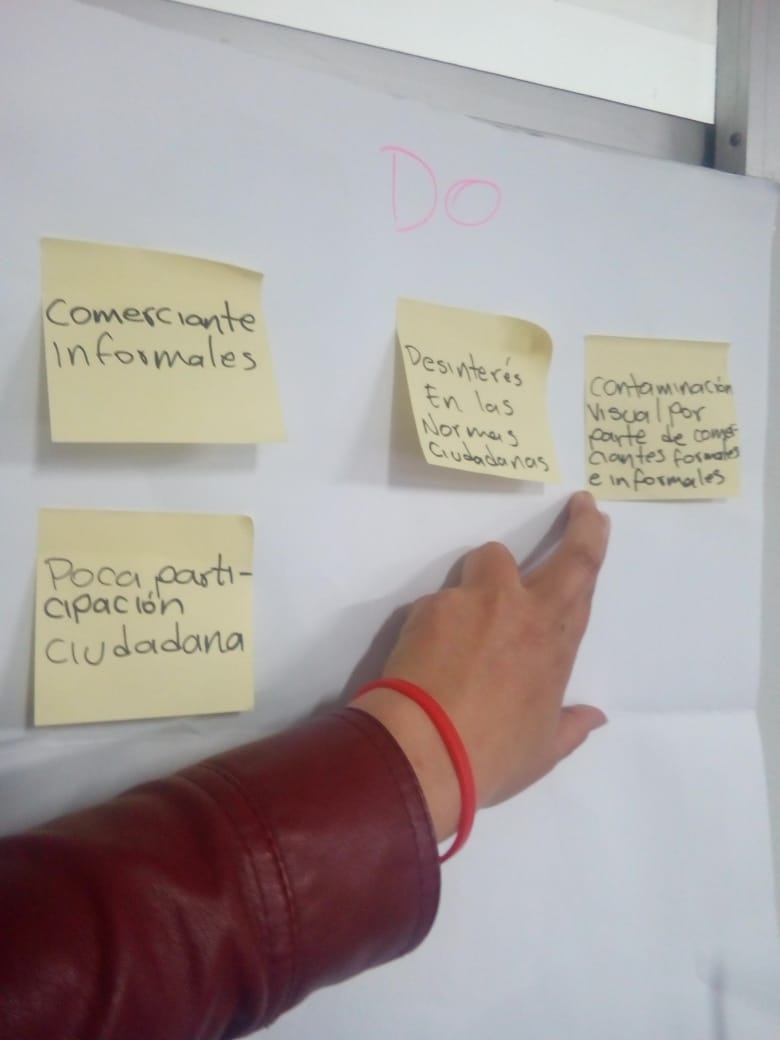 DO
Comerciante
informales
Desinterés
En las
Normas
Ciudadanas
Contaminación
Visual por
parte de comer-
ciantes formales
e informales
Poca parti-
cipación
Ciudadana